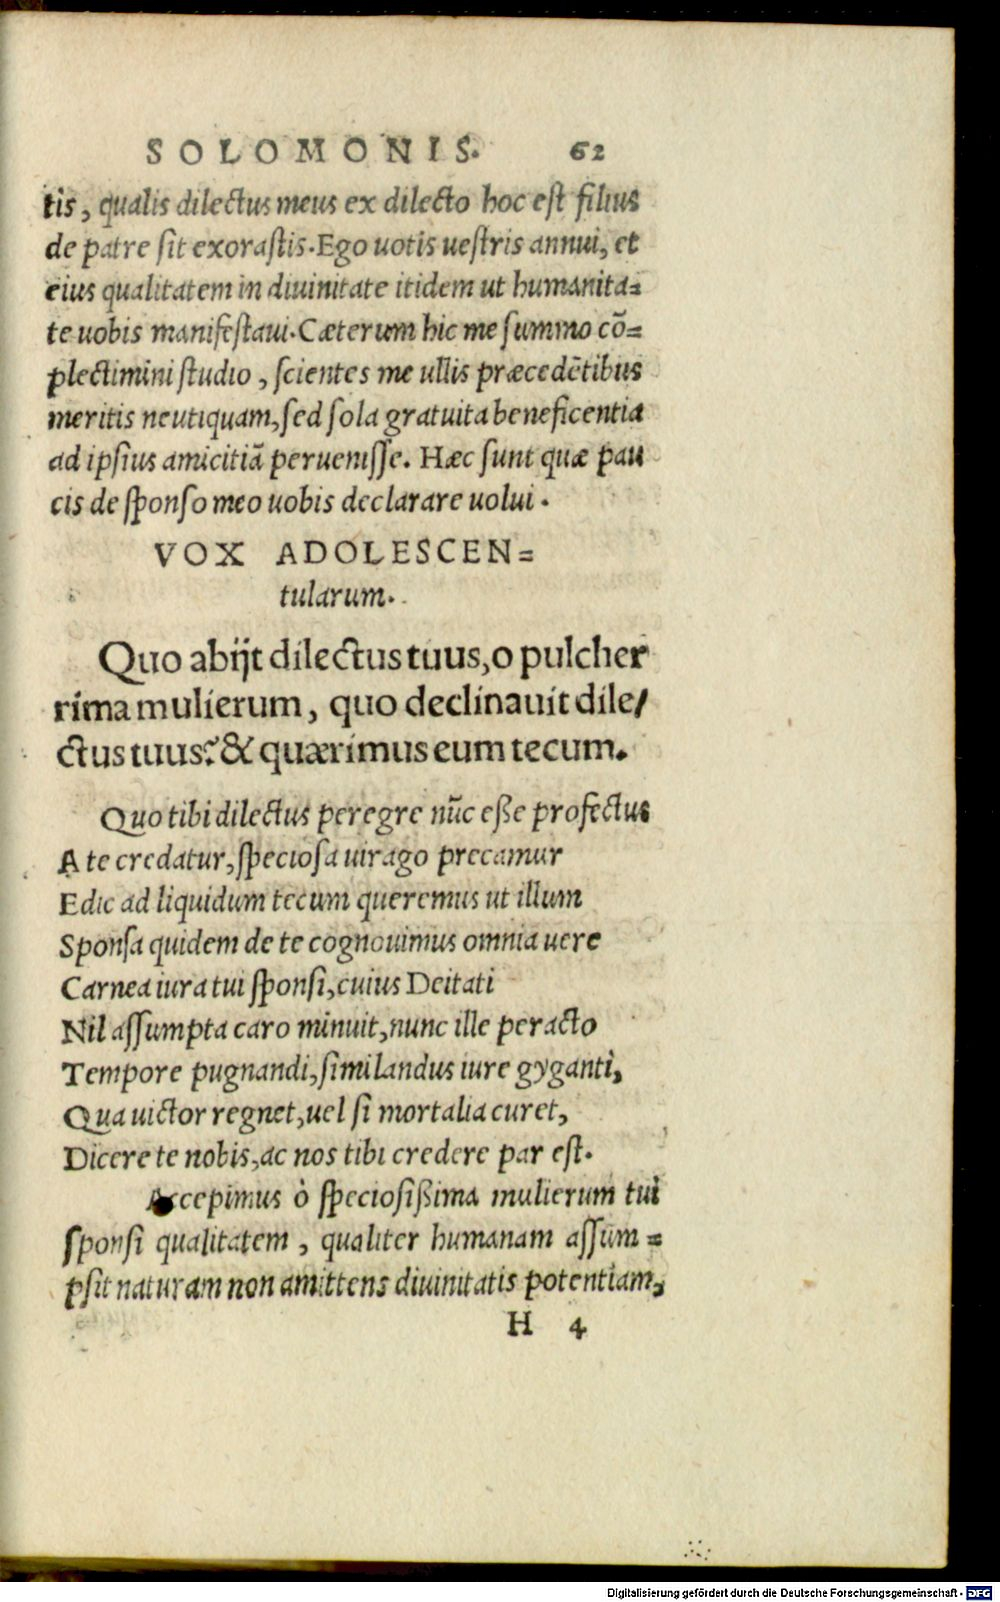 SOLOMONIS. 62
tis, qualis dilectus meus ex dilecto hoc est filius
de patre sit exorastis. Ego uotis uestris annui, et
eius qualitatem in diuinitate itidem ut humanita=
te uobis manifestaui. Cæterum hic me summo cō=
plectimini studio, scientes me ullis præcedētibus
meritis neutiquam, sed sola gratuita beneficentia
ad ipsius amicitiā peruenisse. Hæc sunt quæ pau
cis de sponso meo uobis declarare uolui.
VOX ADOLESCEN=
tularum.
Quo abijt dilectus tuus, o pulcher
rima mulierum, quo declinauit dile/
ctus tuus? & quærimus eum tecum.
Quo tibi dilectus peregre nūc eße profectus
A te credatur, speciosa uirago precamur
Edic ad liquidum tecum queremus ut illum
Sponsa quidem de te cognouimus omnia uere
Carnea iura tui sponsi, cuius Deitati
Nil assumpta caro minuit, nunc ille peracto
Tempore pugnandi, similandus iure gyganti,
Qua uictor regnet, uel si mortalia curet,
Dicere te nobis, ac nos tibi credere par est.
Accepimus ò speciosißima mulierum tui
sponsi qualitatem, qualiter humanam assum=
psit naturam non amittens diuinitatis potentiam,
H 4
Digitalisierung gefördert durch die Deutsche Forschungsgemeinschaft - DFG